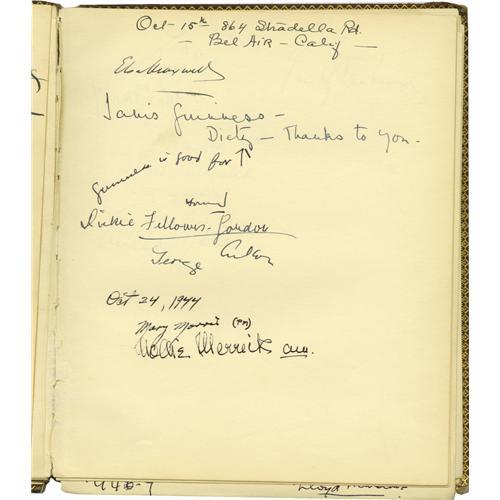 Oct - 15th 864 Stradella Rd.
- Bel Air - Calif -
Elsa Maxwell
Janis Guinness -
Dicty - Thanks to you.
Guinness is good for ↑
Dickie Fellowes-Gordon
George
Oct 24, 1944
Mary Morris (PM)
Mollie Merrick
Lloyd